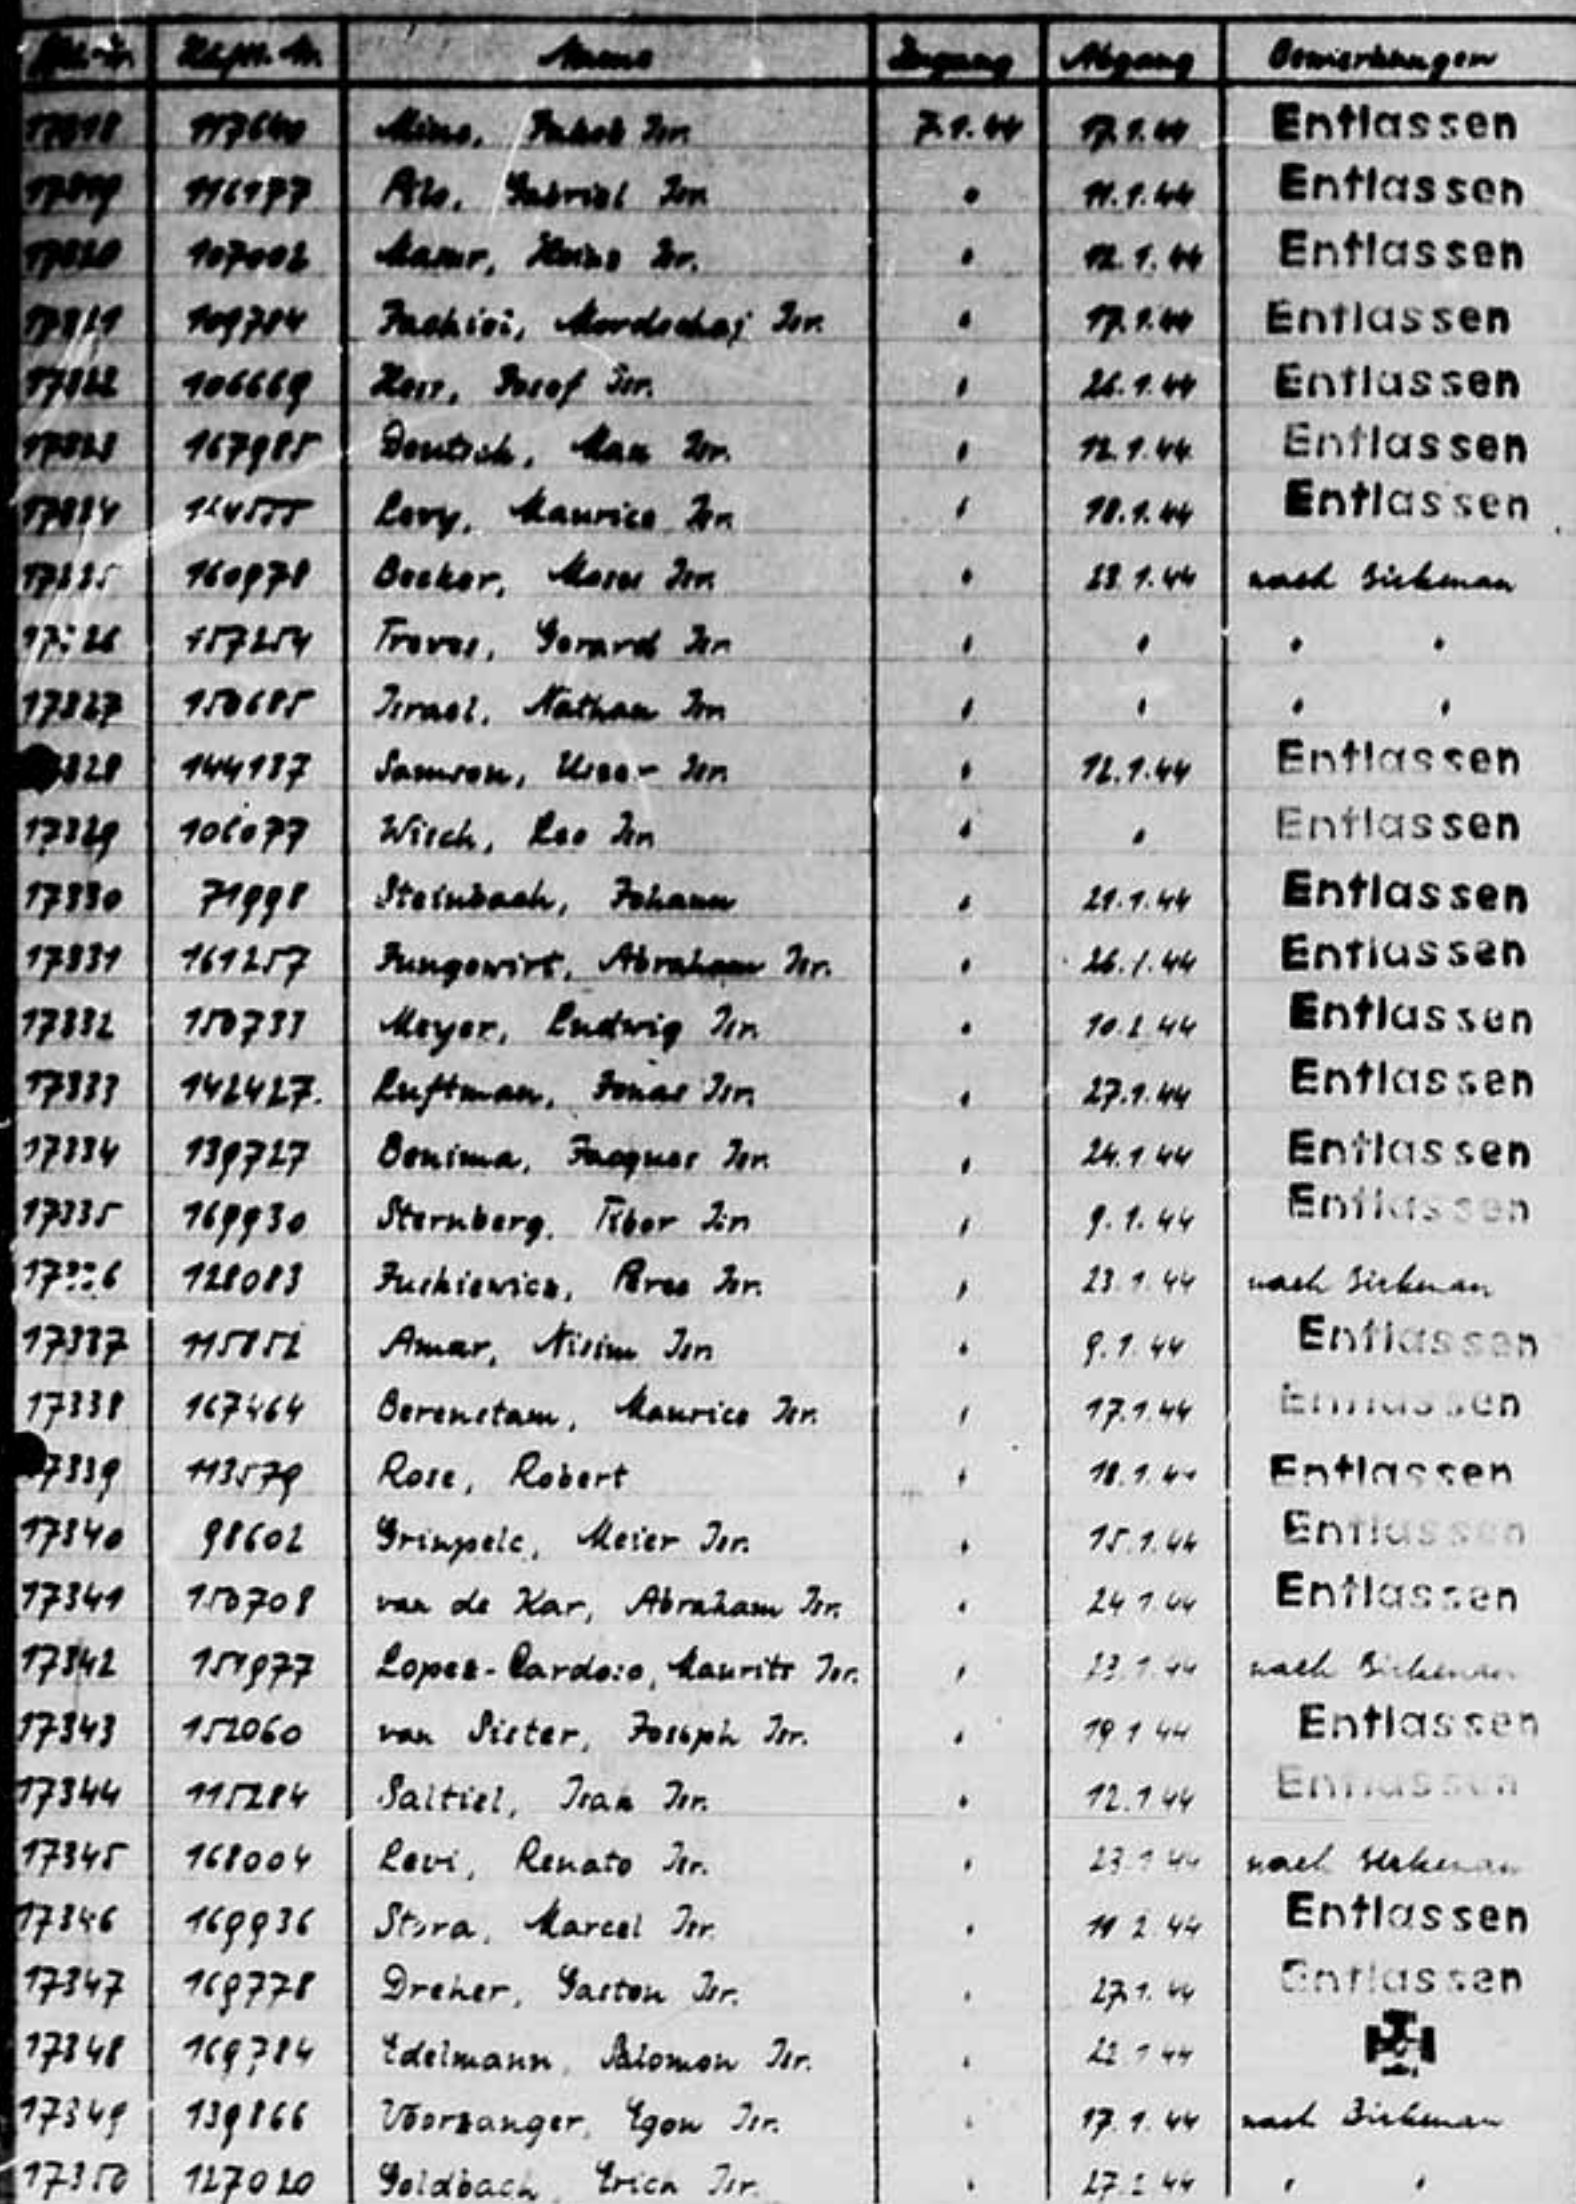 Name Zugang Abgang Bemerkungen
117640 Jakob Isr. 7.1.44 17.1.44 Entlassen
116177 Gabriel Isr. " 11.1.44 Entlassen
107002 Isr. " 12.1.44 Entlassen
109784 Mordechaj Isr. " 17.1.44 Entlassen
106669 Josef Isr. " 26.1.44 Entlassen
167985 Deutsch, Max Isr. " 12.1.44 Entlassen
Levy, Maurice Isr. " 18.1.44 Entlassen
160978 Becker, Moses Isr. " 23.1.44 nach Birkenau
157254 Treves, Gerard Isr. " " " "
17327 150685 Israel, Nathan Isr. " " " "
144137 Samson, Isr. " 12.1.44 Entlassen
17329 106077 Wisch, Leo Isr. " " Entlassen
17330 71998 Steinbach, Johann " 21.1.44 Entlassen
17331 161257 Jungewirt, Abraham Isr. " 26.1.44 Entlassen
17332 150733 Meyer, Ludwig Isr. " 10.2.44 Entlassen
17333 142427. Luftman, Jonas Isr. " 27.1.44 Entlassen
17334 139727 Benima, Jacques Isr. " 24.1.44 Entlassen
17335 169930 Sternberg, Tibor Isr. " 9.1.44 Entlassen
128083 Isr. " 23.1.44 nach Birkenau
17337 115852 Amar, Nisim Isr. " 9.1.44 Entlassen
17338 167464 Berenstam, Maurice Isr. " 17.1.44 Entlassen
17339 113579 Rose, Robert " 18.1.44 Entlassen
17340 98602 Meier Isr. " 15.1.44 Entlassen
17341 150708 van de Kar, Abraham Isr. " 24.1.44 Entlassen
17342 151977 Lopes-Cardozo, Maurits Isr. " 23.1.44 nach Birkenau
17343 152060 van Joseph Isr. " 19.1.44 Entlassen
17344 115284 Saltiel, Isak Isr. " 12.1.44 Entlassen
17345 168004 Levi, Renato Isr. " 23.1.44 nach Birkenau
17346 169936 Stora, Marcel Isr. " 11.2.44 Entlassen
17347 169778 Dreher, Gaston Isr. " 27.1.44 Entlassen
17348 169784 Edelmann, Salomon Isr. " 22.1.44
17349 139866 Voorzanger, Egon Isr. " 17.1.44 nach Birkenau
17350 127020 Goldbach, Erich Isr. " 27.2.44 " "